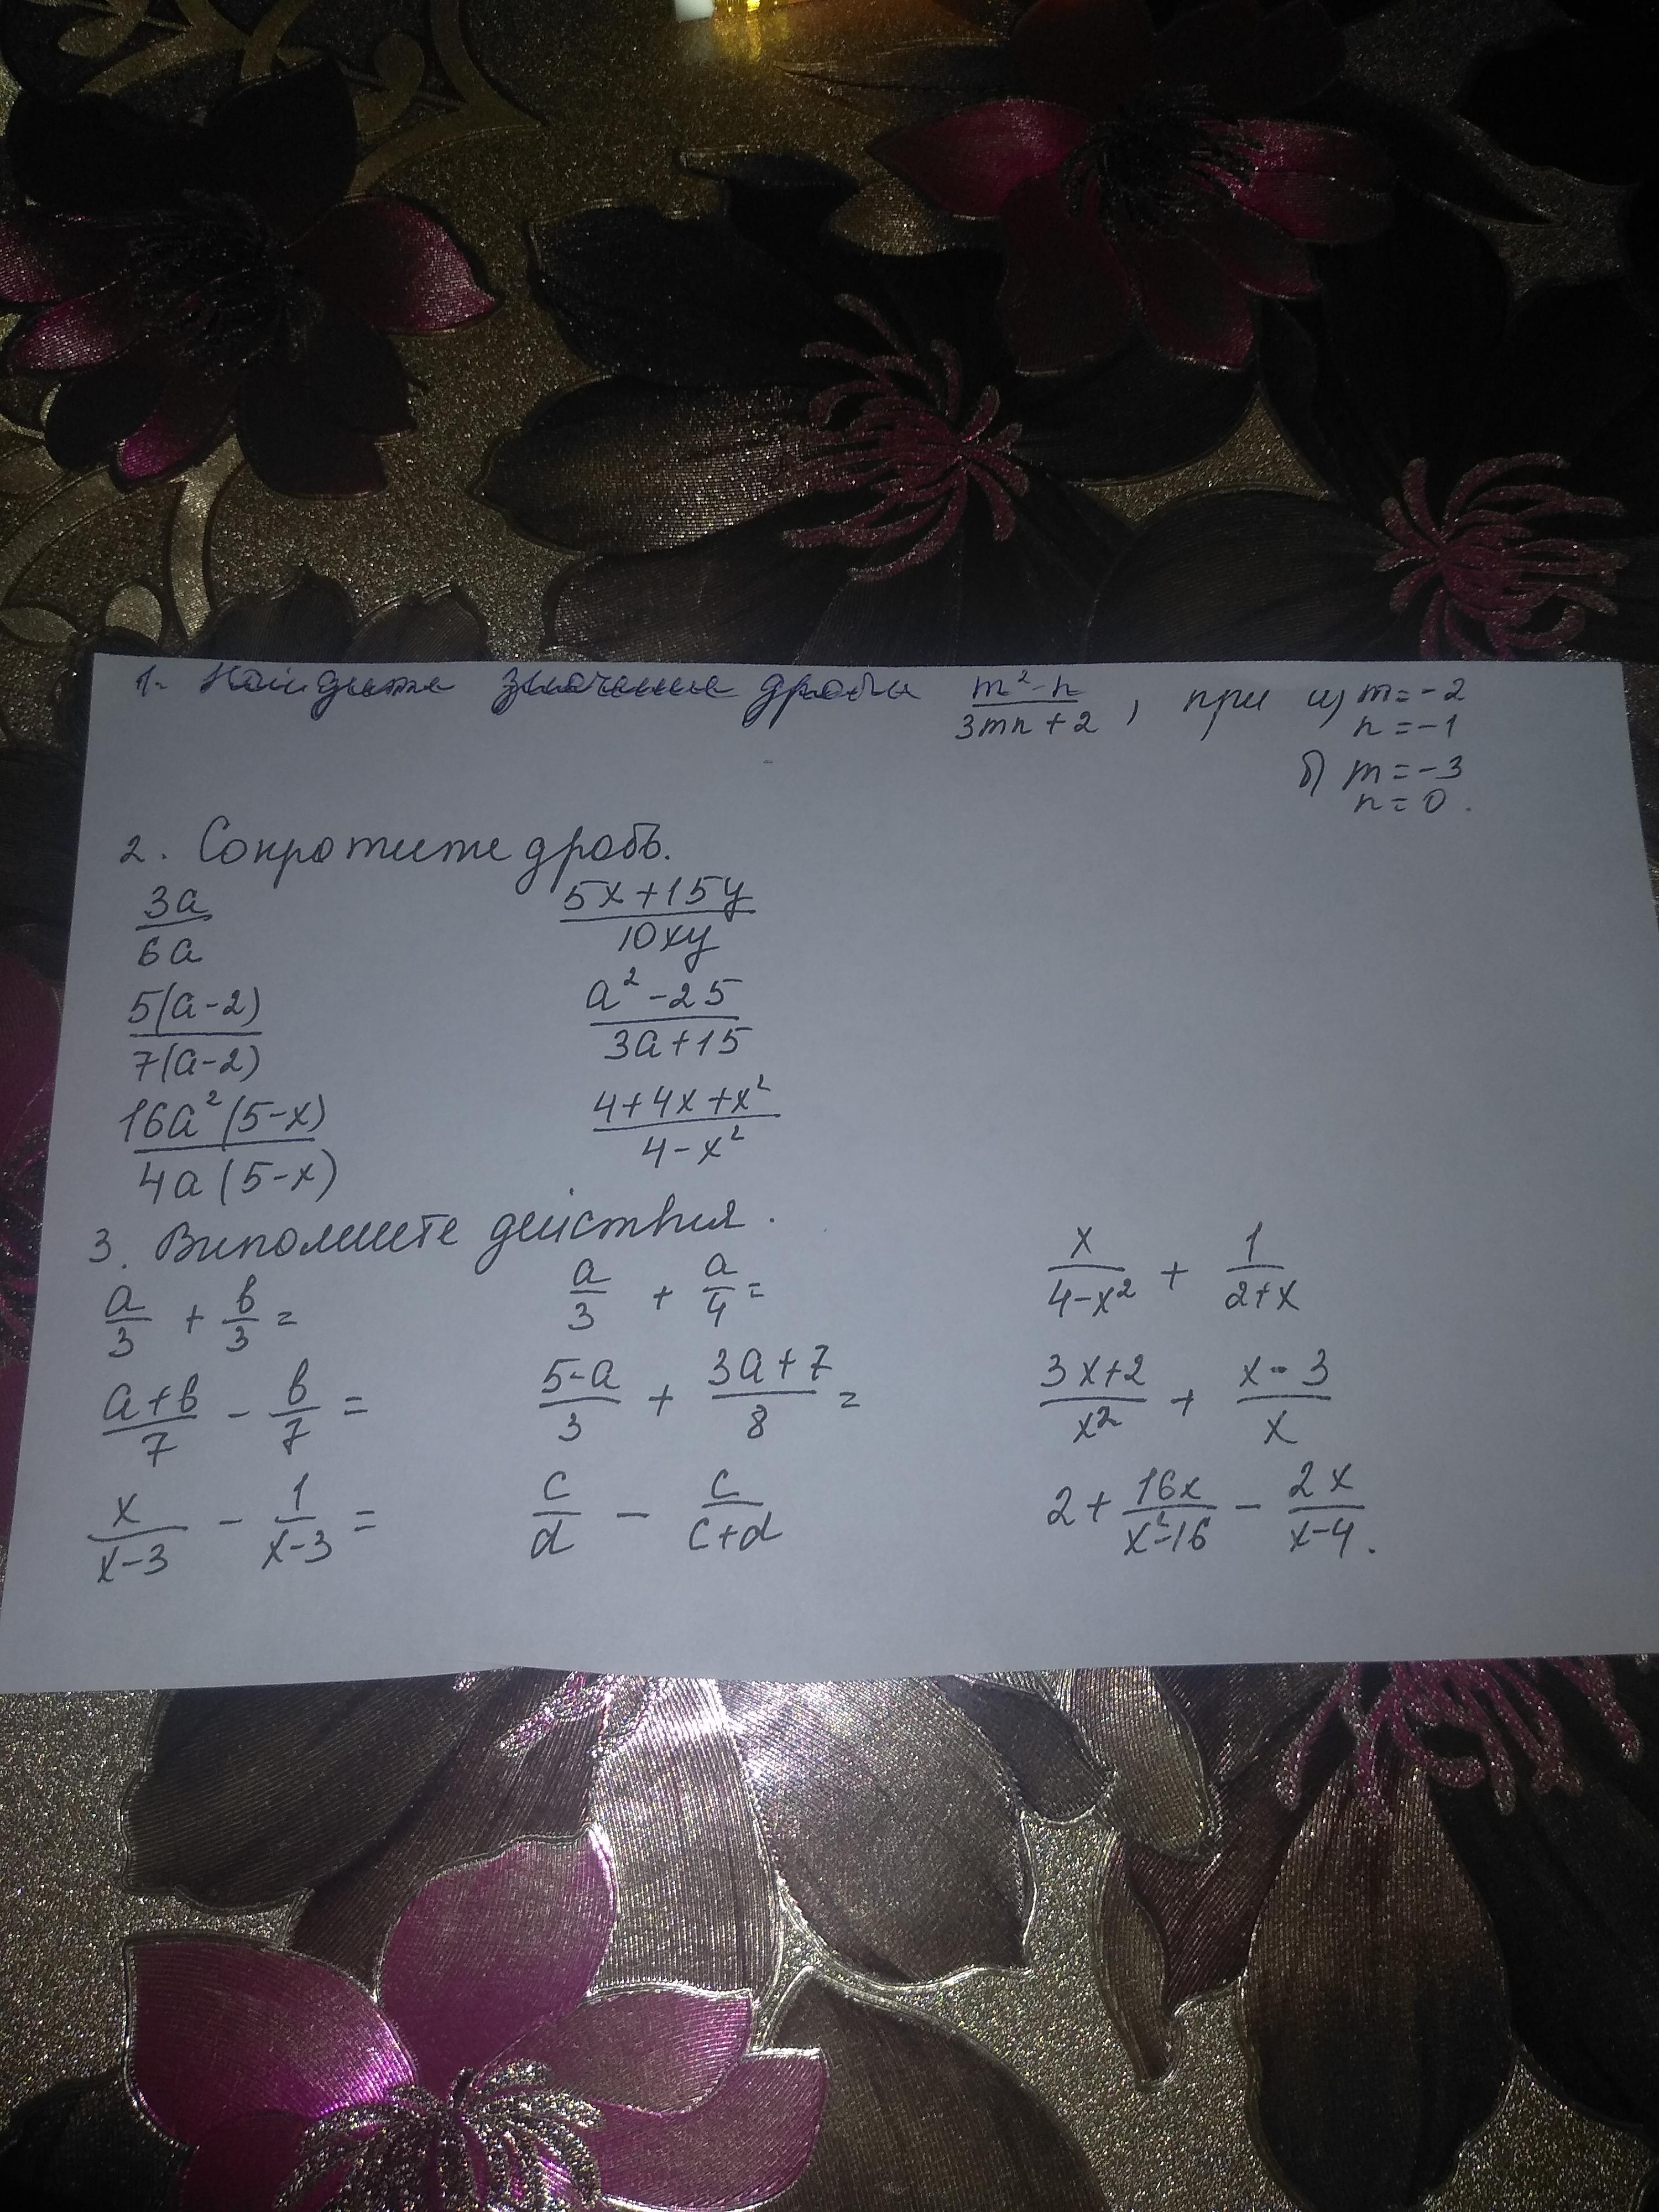 1. Найдите значение дроби (m²-n)/(3mn+2), при а) m=-2
n=-1
б) m=-3
n=0.
2. Сократите дробь.
3a/6a (5x+15y)/10xy
5(a-2)/7(a-2) (a²-25)/(3a+15)
16a²(5-x)/4a(5-x) (4+4x+x²)/(4-x²)
3. Выполните действия.
a/3 + b/3 = a/3 + a/4 = x/(4-x²) + 1/(2+x)
(a+b)/7 - b/7 = (5-a)/3 + (3a+7)/8 = (3x+2)/x² + (x-3)/x
x/(x-3) - 1/(x-3) = c/d - c/(c+d) 2 + 16x/(x²-16) - 2x/(x-4).